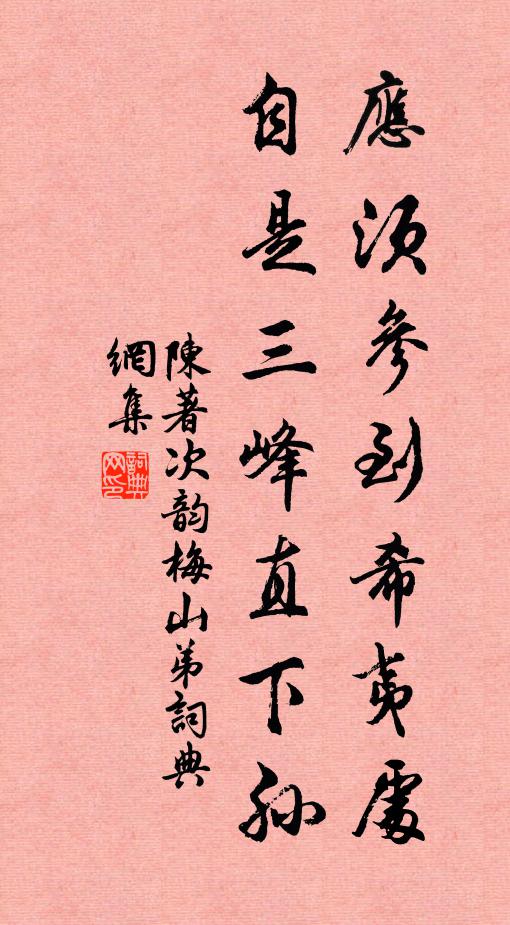 應須參到希夷處
自是三峰直下孫
陳著次韵梅山弟詞典
網集
詞典
网印